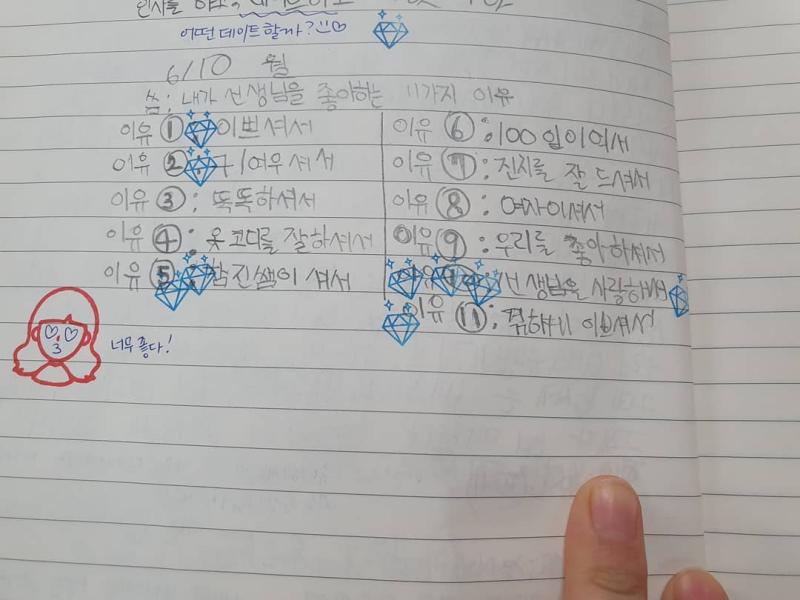 인사를 하고,
어떤 데이트 할까?
6/10 월
씀: 내가 선생님을 좋아하는 11가지 이유
이유 ①: 이쁘셔서
이유 ②: 구ㅣ여우셔서
이유 ③: 똑똑하셔서
이유 ④: 옷 코디를 잘하셔서
이유 ⑤: 쌤이셔서
이유 ⑥: 100입이여서
이유 ⑦: 진지를 잘 드셔서
이유 ⑧: 여자이셔서
이유 ⑨: 우리를 좋아하셔서
이유 선생님을 사랑하셔서
이유 ⑪: 이쁘셔서
너무 좋다!